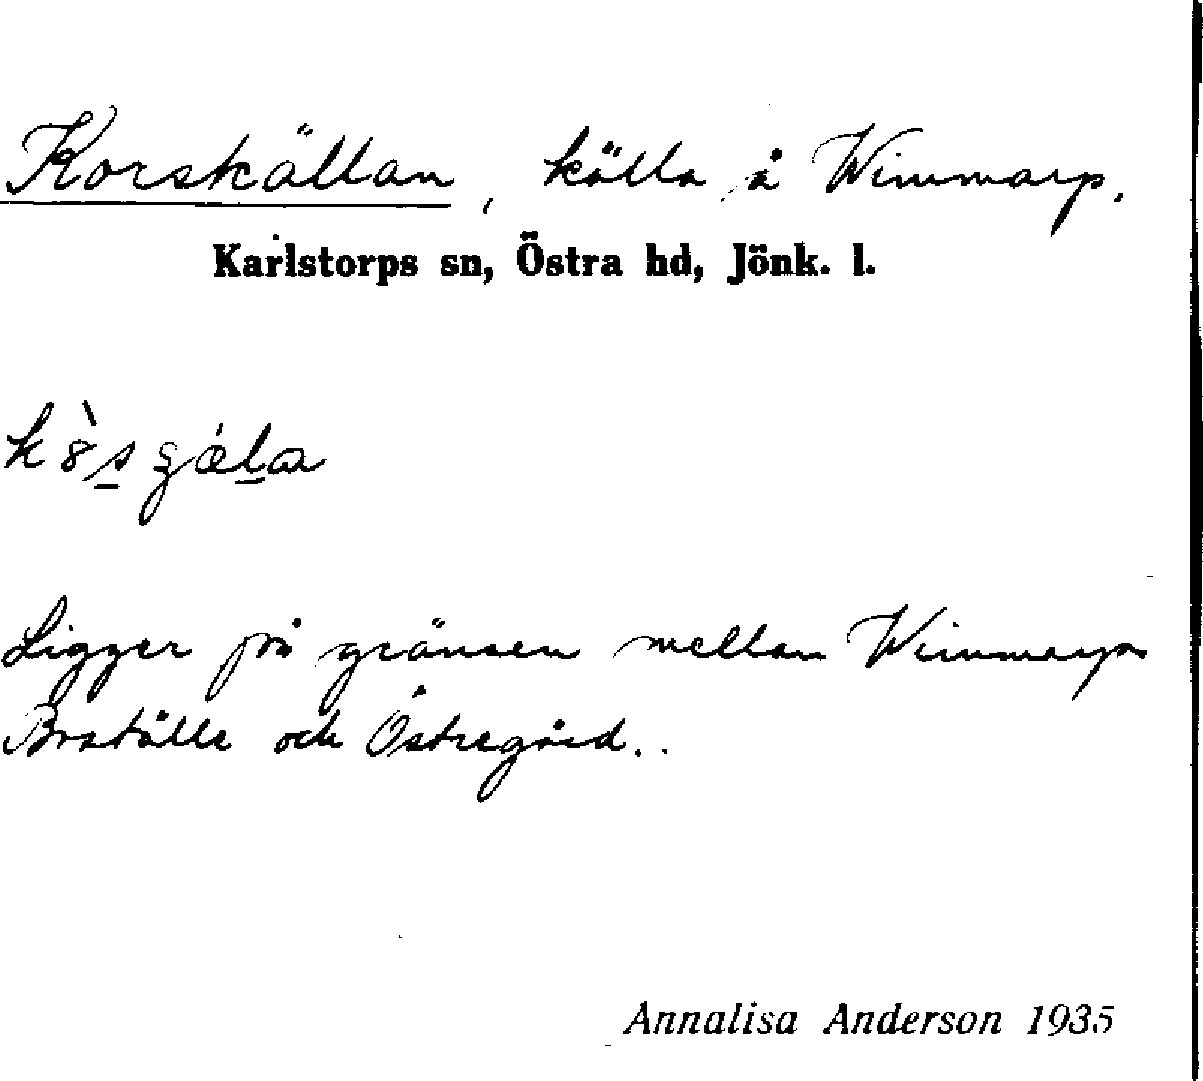 Korskällan, källa å Wimmarp.
Karlstorps sn, Östra hd, Jönk. l.
Ligger på gränsen mellan Wimmarps
Boställe och Östregård.
Annalisa Anderson 1935